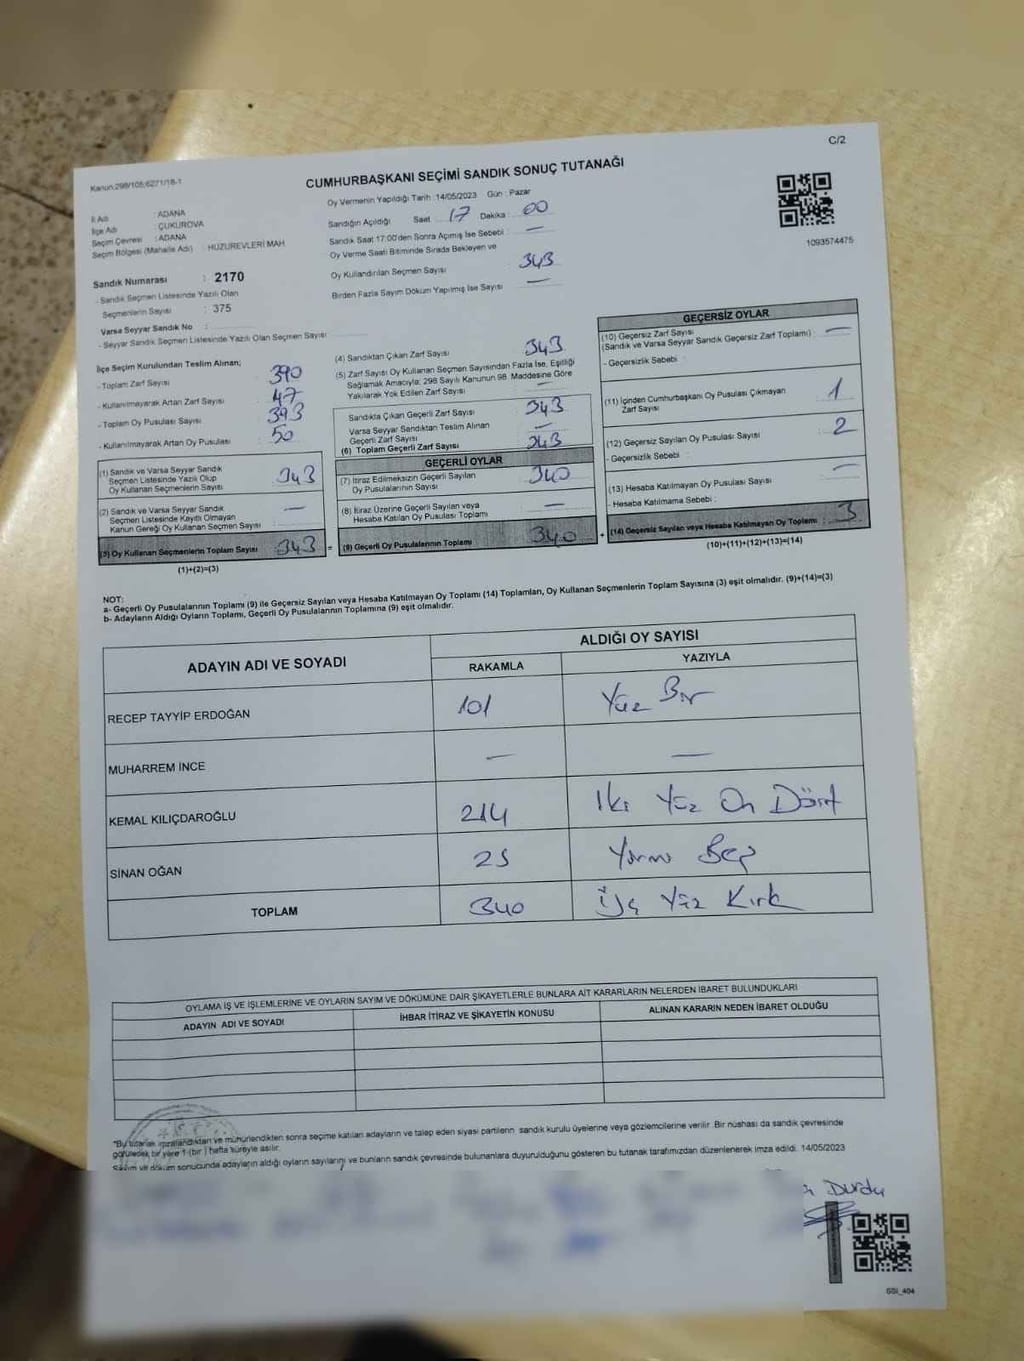 C/2
Kanun:298/105;6271/18-1
CUMHURBAŞKANI SEÇİMİ SANDIK SONUÇ TUTANAĞI
İl Adı : ADANA
İlçe Adı : ÇUKUROVA
Seçim Çevresi : ADANA
Seçim Bölgesi (Mahalle Adı) : HUZUREVLERİ MAH
Sandık Numarası : 2170
- Sandık Seçmen Listesinde Yazılı Olan
Seçmenlerin Sayısı : 375
Varsa Seyyar Sandık No :
- Seyyar Sandık Seçmen Listesinde Yazılı Olan Seçmen Sayısı
Oy Vermenin Yapıldığı Tarih :14/05/2023 Gün : Pazar
Sandığın Açıldığı Saat : 17 Dakika : 00
Sandık Saat 17:00'den Sonra Açılmış İse Sebebi : —
Oy Verme Saati Bitiminde Sırada Bekleyen ve
Oy Kullandırılan Seçmen Sayısı 343
Birden Fazla Sayım Döküm Yapılmış İse Sayısı —
1093574475
İlçe Seçim Kurulundan Teslim Alınan;
- Toplam Zarf Sayısı 390
- Kullanılmayarak Artan Zarf Sayısı 47
- Toplam Oy Pusulası Sayısı 393
- Kullanılmayarak Artan Oy Pusulası 50
(1) Sandık ve Varsa Seyyar Sandık
Seçmen Listesinde Yazılı Olup
Oy Kullanan Seçmenlerin Sayısı 343
(2) Sandık ve Varsa Seyyar Sandık
Seçmen Listesinde Kayıtlı Olmayan
Kanun Gereği Oy Kullanan Seçmen Sayısı —
(3) Oy Kullanan Seçmenlerin Toplam Sayısı 343 =
(1)+(2)=(3)
(4) Sandıktan Çıkan Zarf Sayısı 343
(5) Zarf Sayısı Oy Kullanan Seçmen Sayısından Fazla İse, Eşitliği
Sağlamak Amacıyla; 298 Sayılı Kanunun 98. Maddesine Göre
Yakılarak Yok Edilen Zarf Sayısı —
Sandıkta Çıkan Geçerli Zarf Sayısı 343
Varsa Seyyar Sandıktan Teslim Alınan
Geçerli Zarf Sayısı —
(6) Toplam Geçerli Zarf Sayısı 343
GEÇERLİ OYLAR
(7) İtiraz Edilmeksizin Geçerli Sayılan
Oy Pusulalarının Sayısı 340
(8) İtiraz Üzerine Geçerli Sayılan veya
Hesaba Katılan Oy Pusulası Toplamı —
(9) Geçerli Oy Pusulalarının Toplamı 340 +
GEÇERSİZ OYLAR
(10) Geçersiz Zarf Sayısı
(Sandık ve Varsa Seyyar Sandık Geçersiz Zarf Toplamı) : —
- Geçersizlik Sebebi :
(11) İçinden Cumhurbaşkanı Oy Pusulası Çıkmayan
Zarf Sayısı 1
(12) Geçersiz Sayılan Oy Pusulası Sayısı : 2
- Geçersizlik Sebebi :
(13) Hesaba Katılmayan Oy Pusulası Sayısı : —
- Hesaba Katılmama Sebebi :
(14) Geçersiz Sayılan veya Hesaba Katılmayan Oy Toplamı : 3
(10)+(11)+(12)+(13)=(14)
NOT:
a- Geçerli Oy Pusulalarının Toplamı (9) ile Geçersiz Sayılan veya Hesaba Katılmayan Oy Toplamı (14) Toplamları, Oy Kullanan Seçmenlerin Toplam Sayısına (3) eşit olmalıdır. (9)+(14)=(3)
b- Adayların Aldığı Oyların Toplamı, Geçerli Oy Pusulalarının Toplamına (9) eşit olmalıdır.
ADAYIN ADI VE SOYADI ALDIĞI OY SAYISI
RAKAMLA YAZIYLA
RECEP TAYYİP ERDOĞAN 101 Yüz Bir
MUHARREM İNCE — —
KEMAL KILIÇDAROĞLU 214 İki Yüz On Dört
SİNAN OĞAN 25 Yirmi Beş
TOPLAM 340 Üç Yüz Kırk
OYLAMA İŞ VE İŞLEMLERİNE VE OYLARIN SAYIM VE DÖKÜMÜNE DAİR ŞİKAYETLERLE BUNLARA AİT KARARLARIN NELERDEN İBARET BULUNDUKLARI
ADAYIN ADI VE SOYADI İHBAR İTİRAZ VE ŞİKAYETİN KONUSU ALINAN KARARIN NEDEN İBARET OLDUĞU
*Bu tutanak imzalandıktan ve mühürlendikten sonra seçime katılan adayların ve talep eden siyasi partilerin sandık kurulu üyelerine veya gözlemcilerine verilir. Bir nüshası da sandık çevresinde
görülecek bir yere 1 (bir ) hafta süreyle asılır.
Sayım ve döküm sonucunda adayların aldığı oyların sayılarını ve bunların sandık çevresinde bulunanlara duyurulduğunu gösteren bu tutanak tarafımızdan düzenlenerek imza edildi. 14/05/2023
Durdu
SSI_404